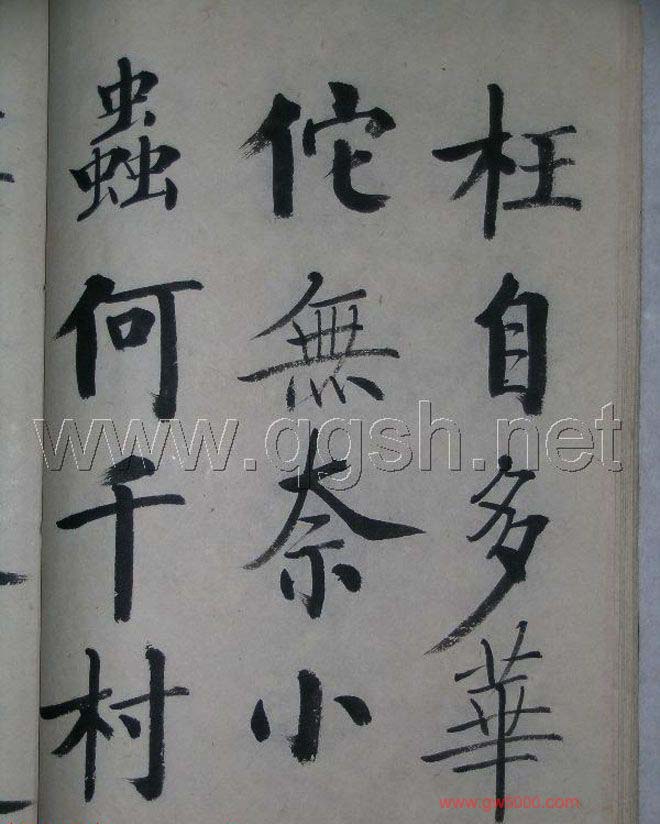 枉自多華
佗無奈小
蟲何千村
www.ggsh.net
www.gw5000.com